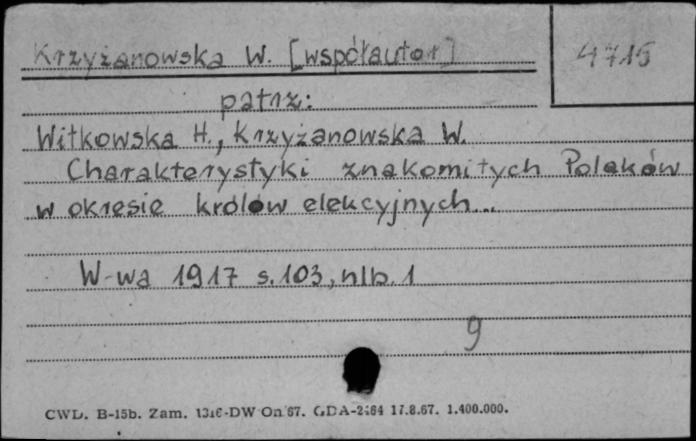 Krzyżanowska W. [współautor]
4715
patrz:
Witkowska H., Krzyżanowska W.
Charakterystyki znakomitych Polaków
w okresie królów elekcyjnych...
W-wa 1917 s. 103, nlb. 1
9
CWD. B-15b. Zam. 1316-DW On 67. GDA-2464 17.8.67. 1.400.000.